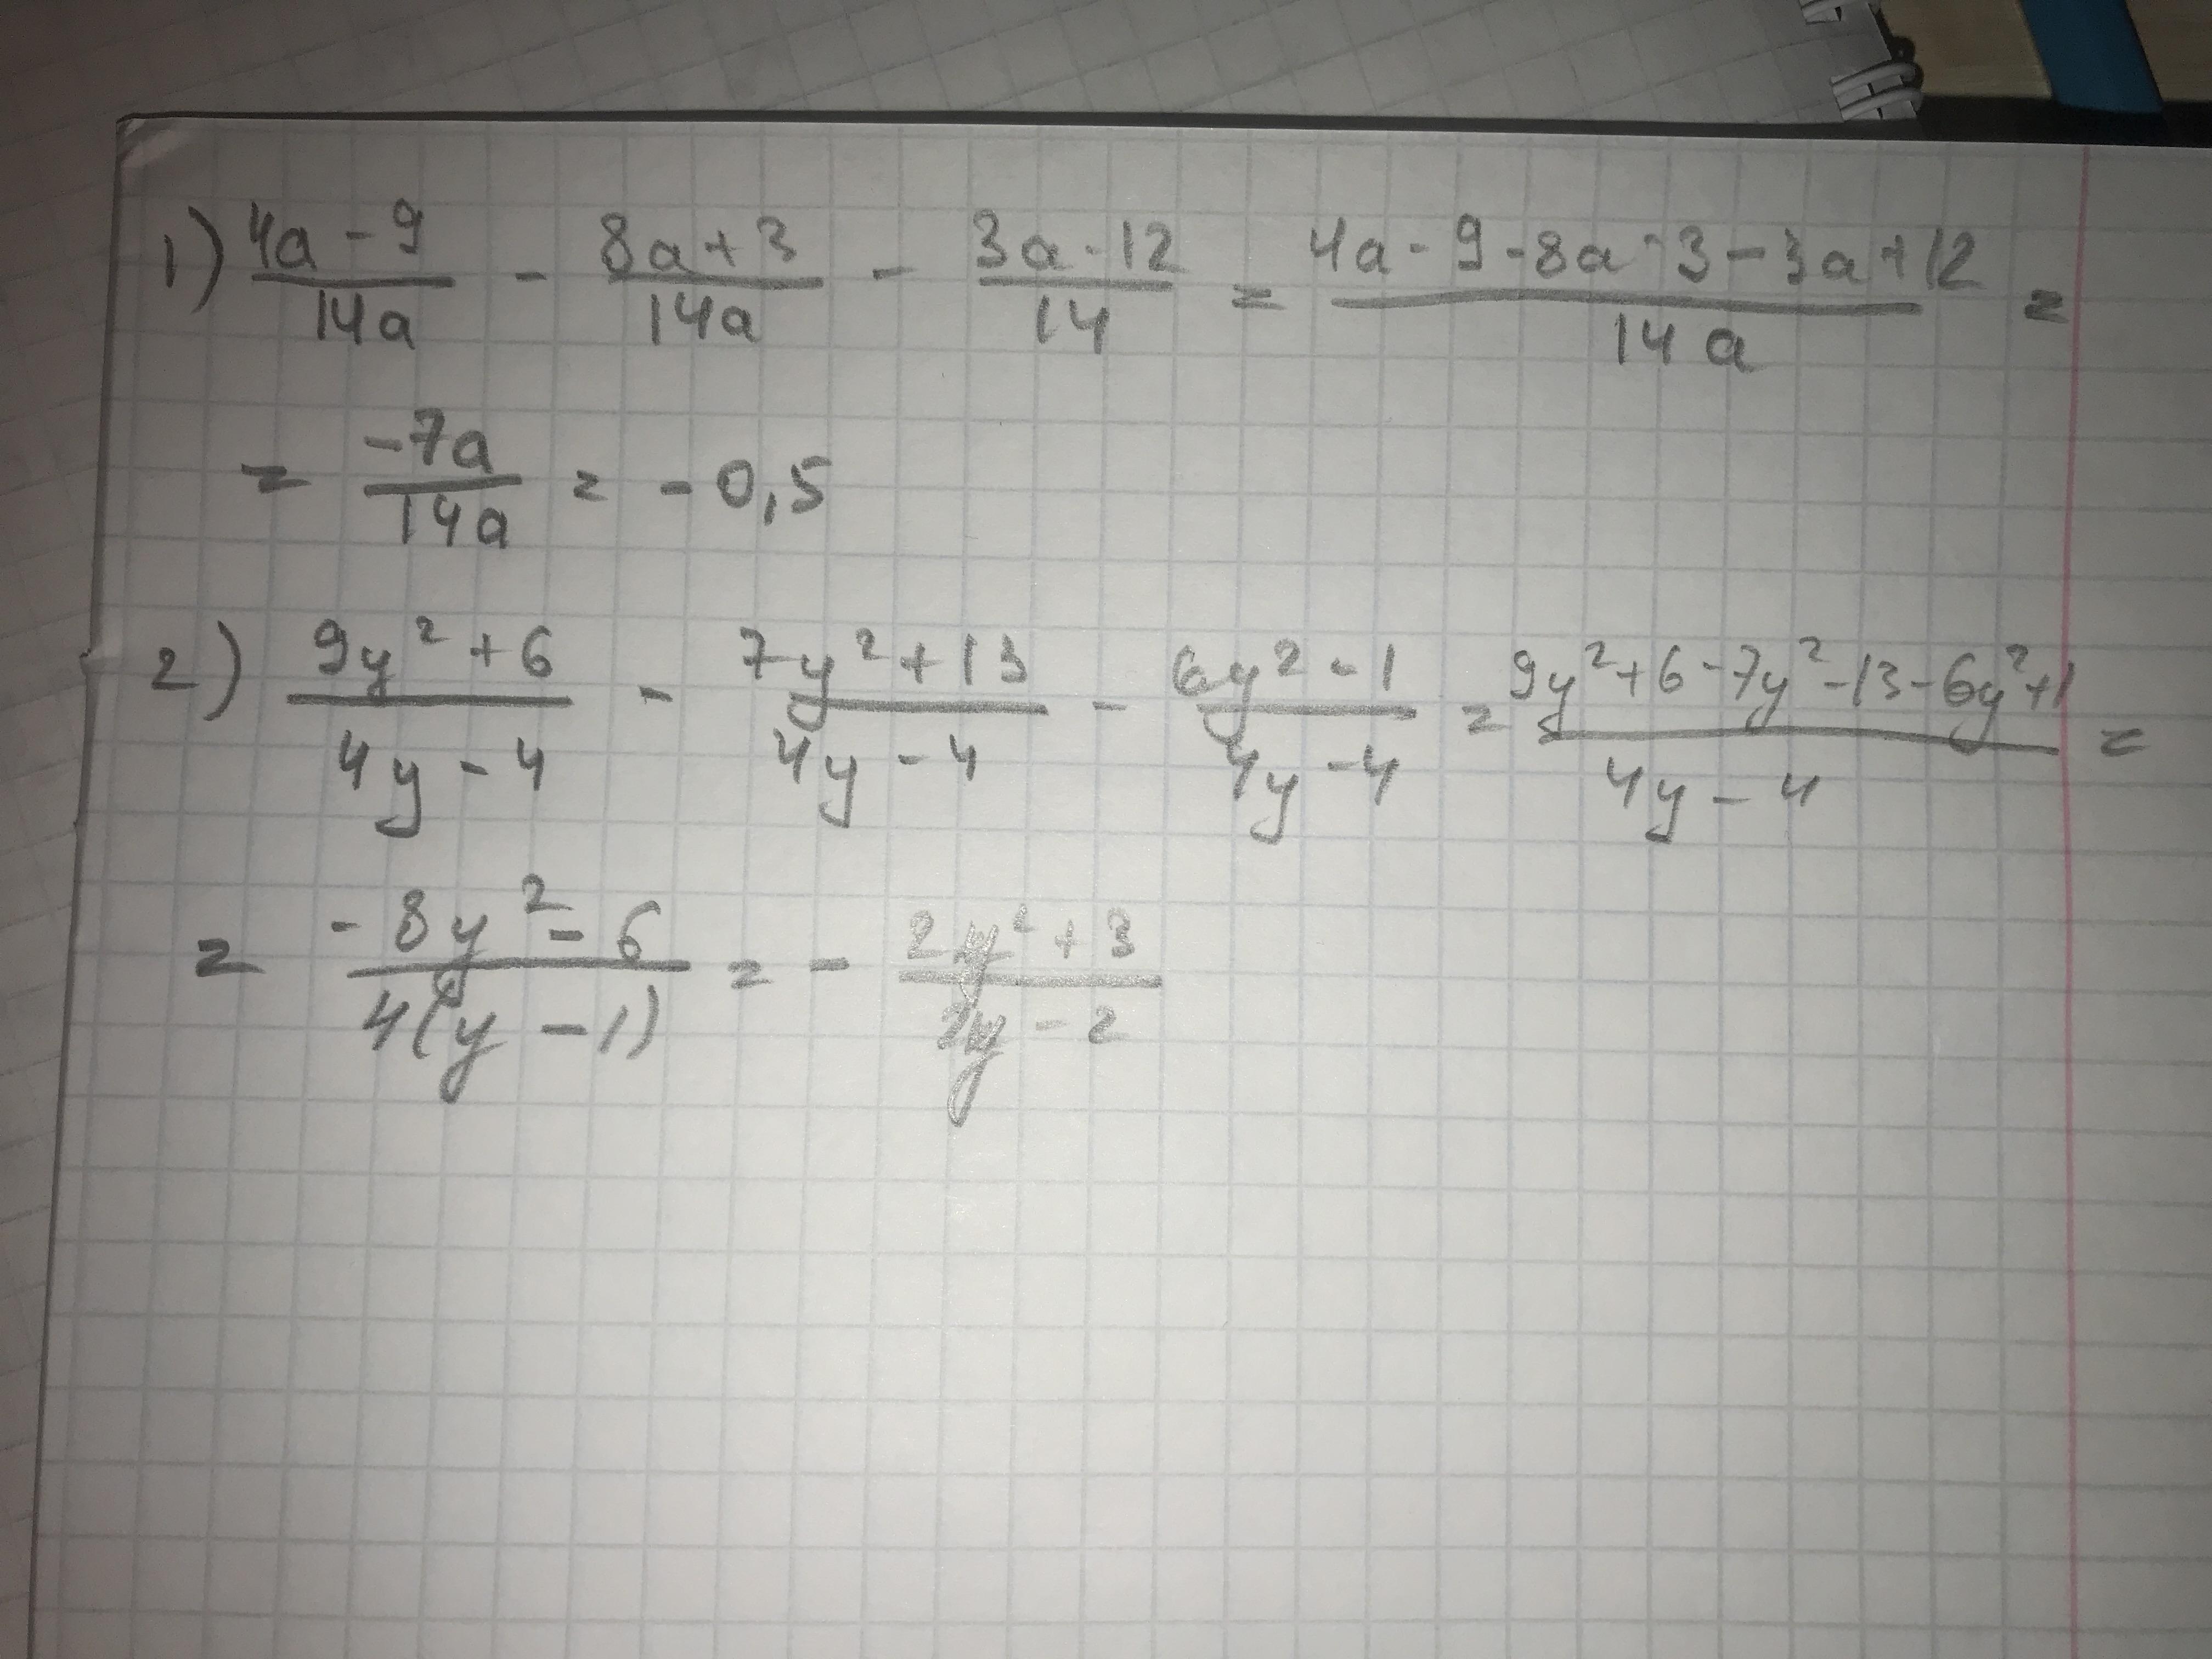 1) (4a - 9)/(14a) - (8a + 3)/(14a) - (3a - 12)/(14) = (4a - 9 - 8a - 3 - 3a + 12)/(14a) =
= (-7a)/(14a) = -0,5
2) (9y² + 6)/(4y - 4) - (7y² + 13)/(4y - 4) - (6y² - 1)/(4y - 4) = (9y² + 6 - 7y² - 13 - 6y² + 1)/(4y - 4) =
= (-8y² - 6)/(4(y - 1)) = - (2y² + 3)/(2y - 2)